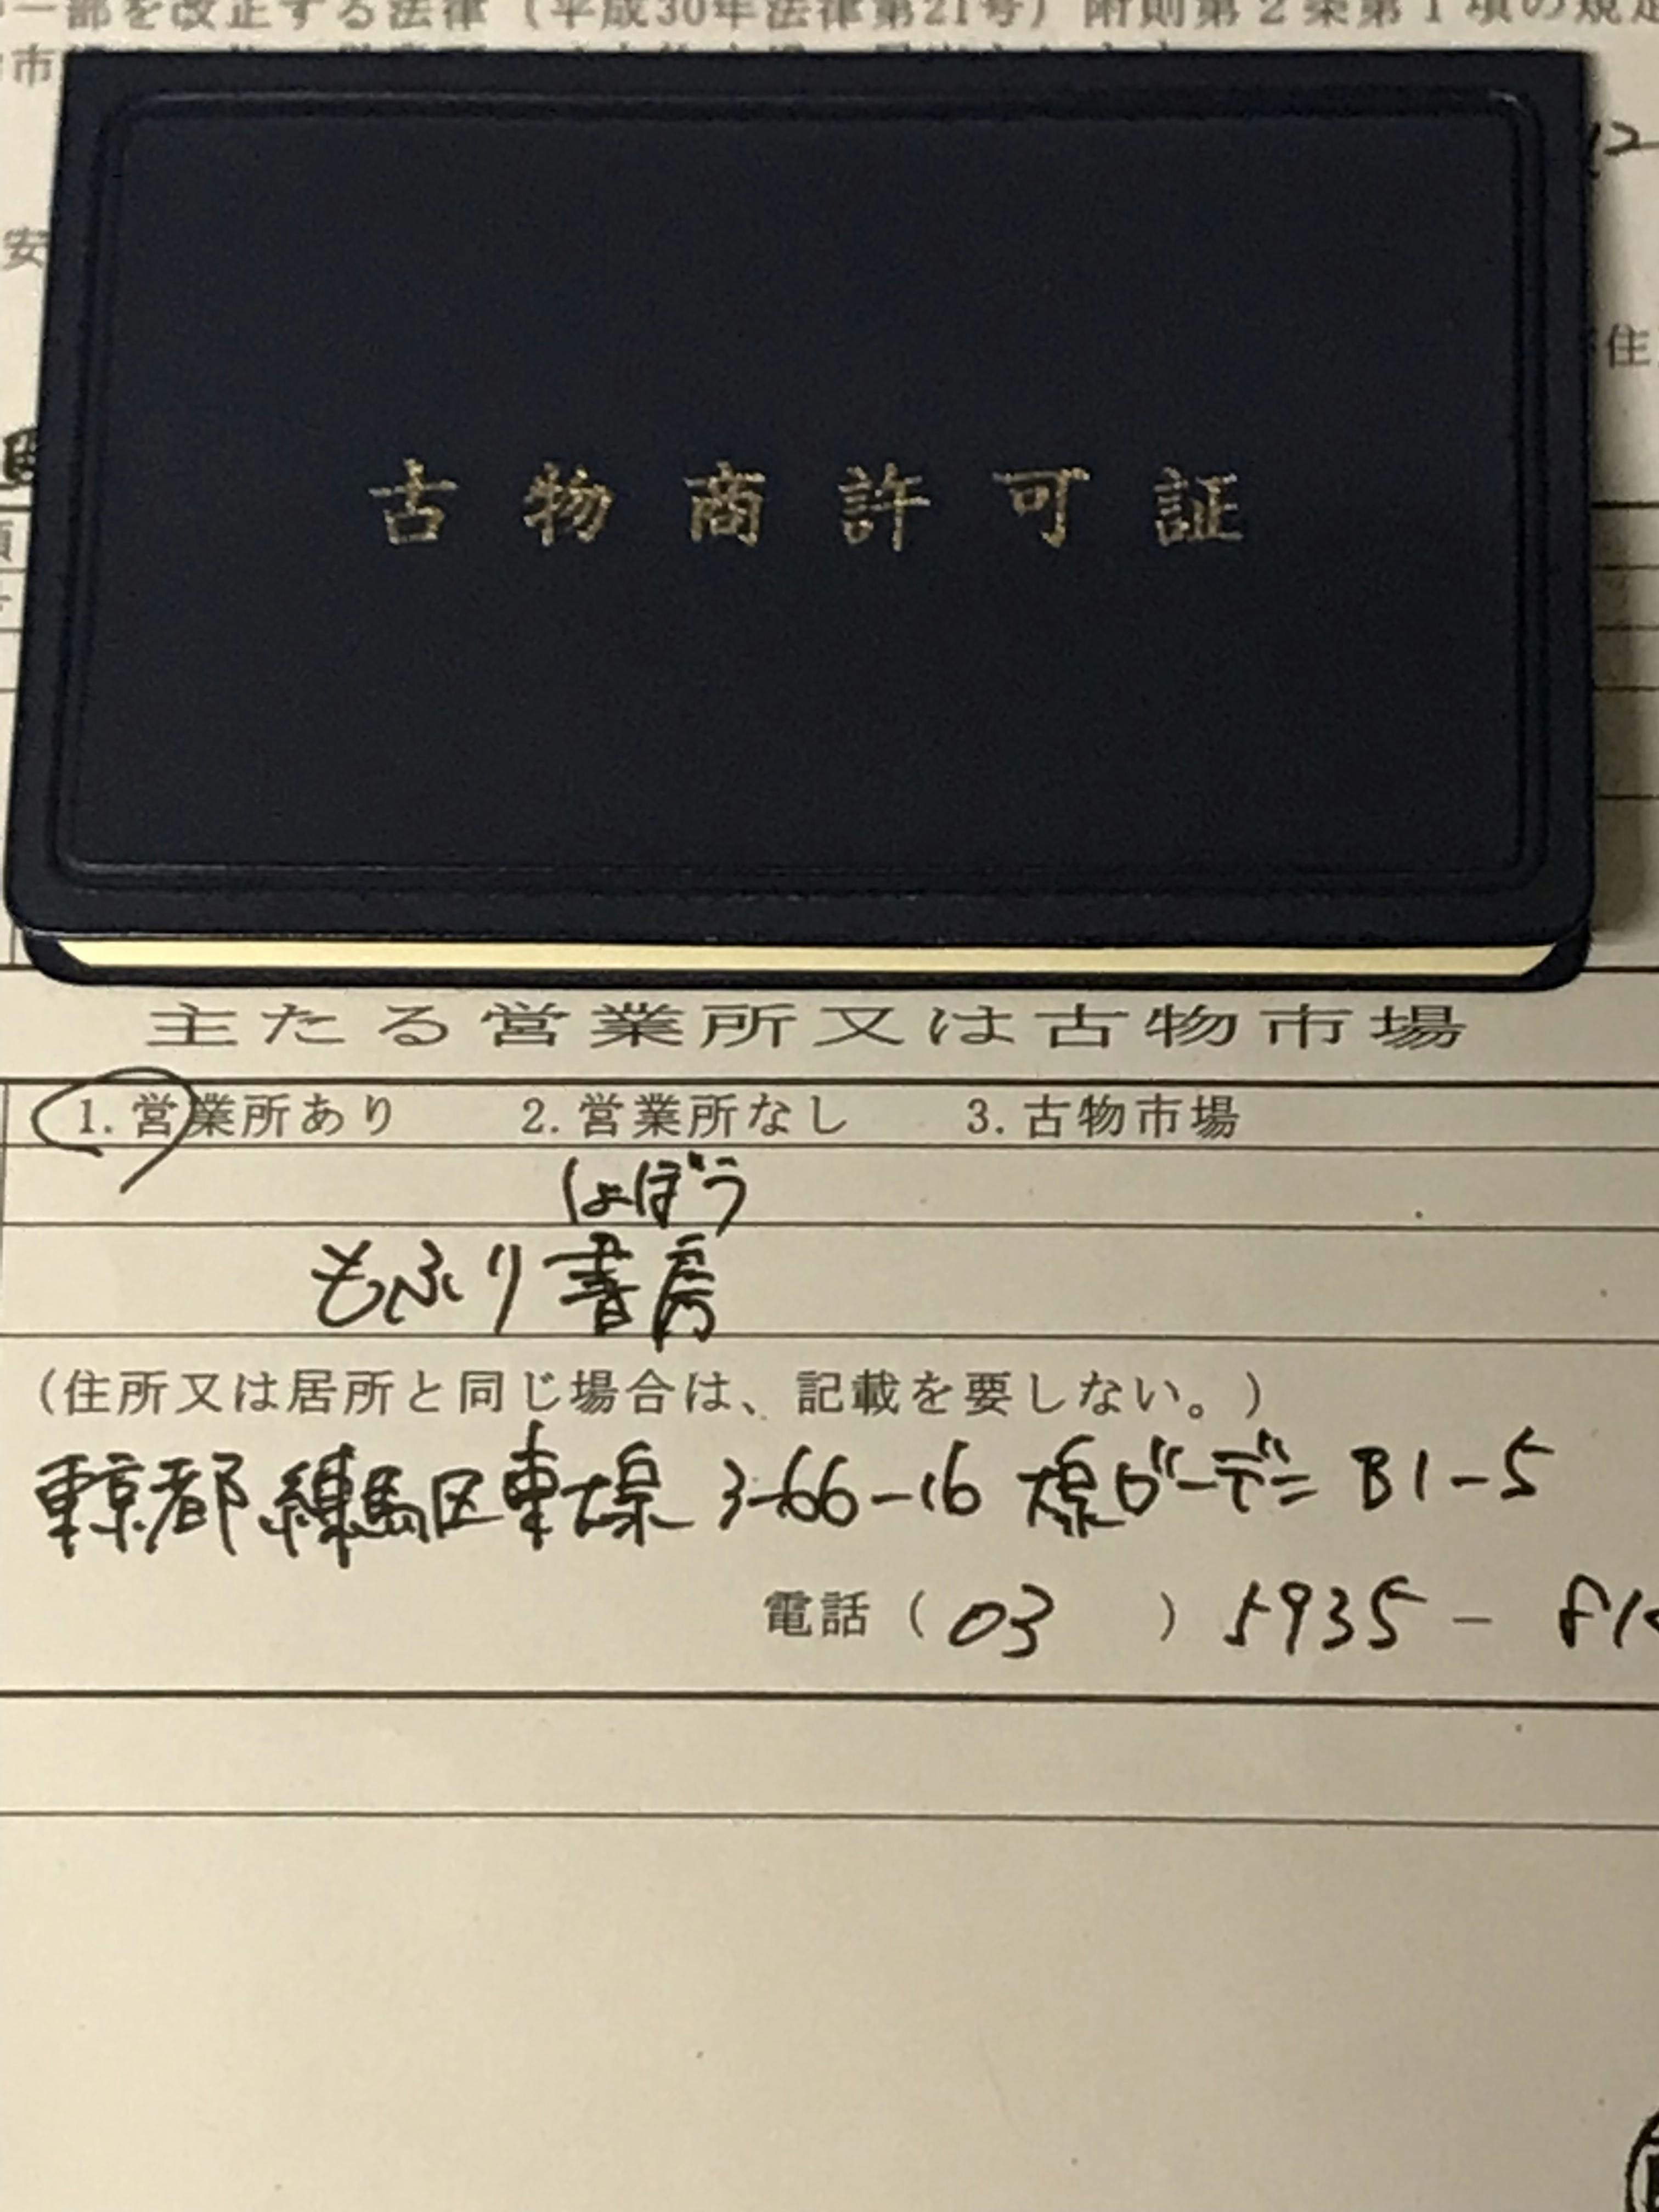 一部を改正する法律（平成30年法律第21号）附則第２条第１項の規定
市
12
安
住
古物商許可証
主たる営業所又は古物市場
1.営業所あり 2.営業所なし 3.古物市場
しょぼう
もふり書房
(住所又は居所と同じ場合は、記載を要しない。)
東京都練馬区東大泉3-66-16 大泉ガーデン B1-5
電話（03）5935-81